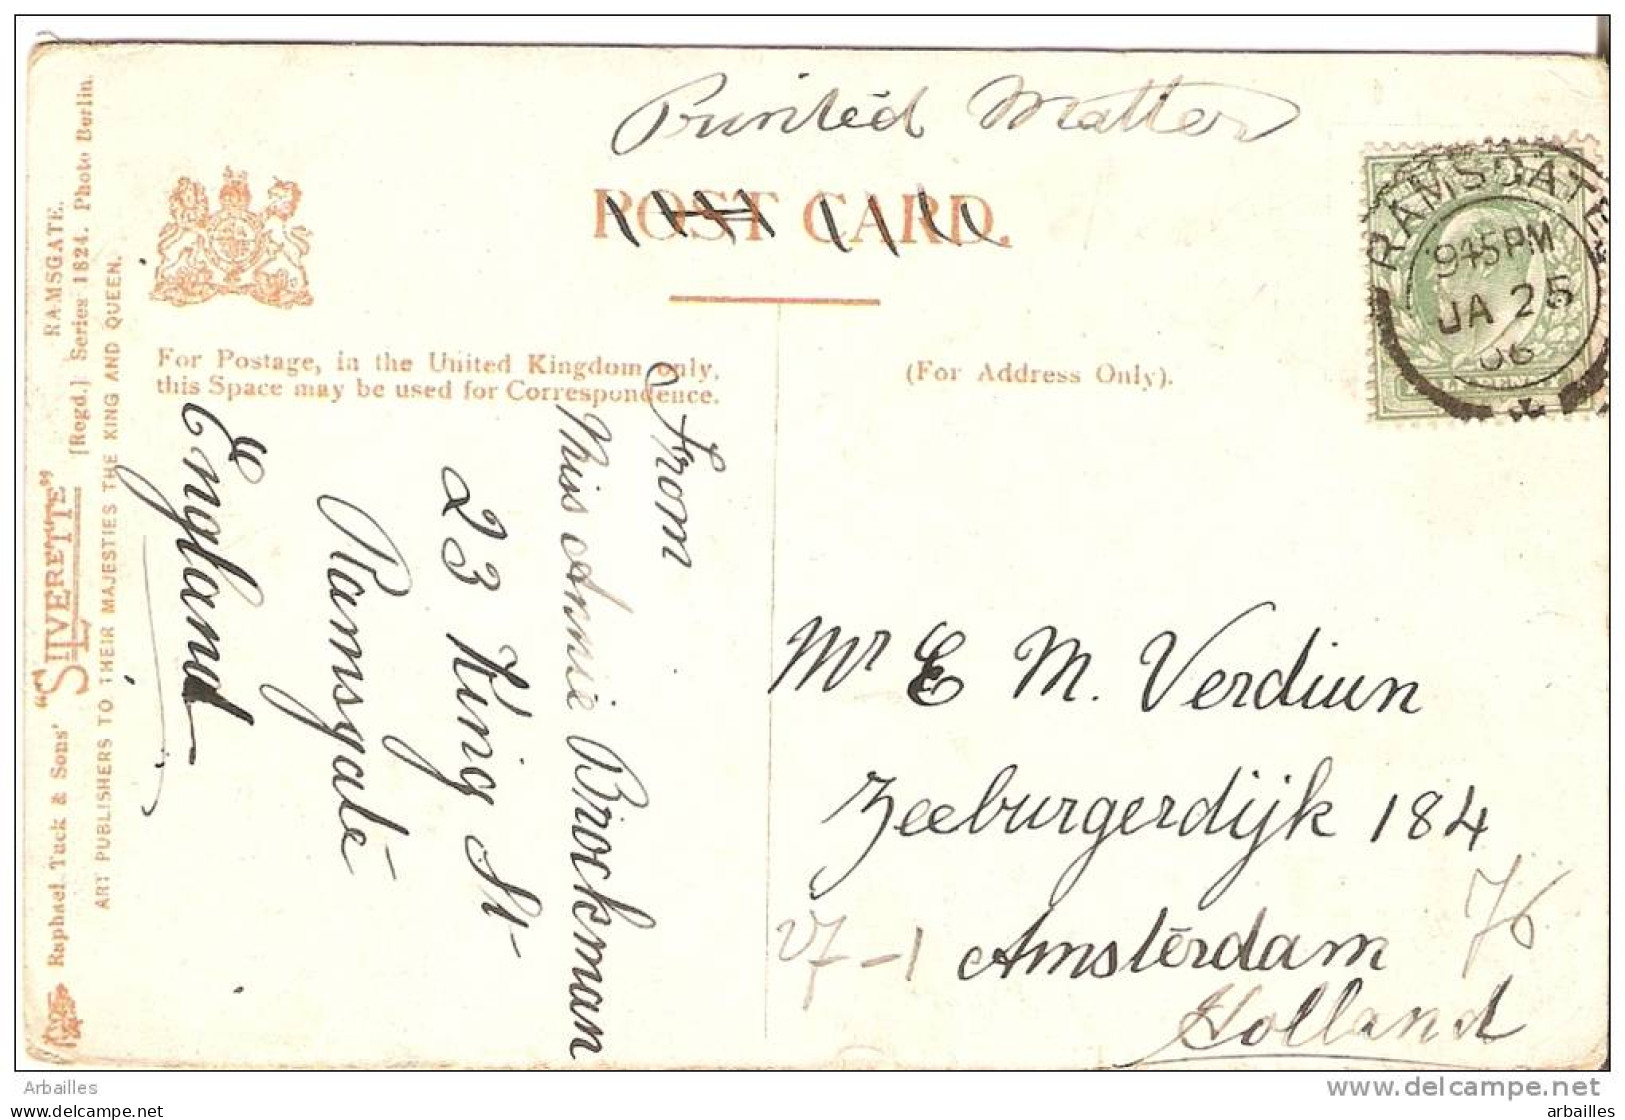 Printed Matter
POST CARD.
RAMSGATE
945PM
JA 25
06
For Postage, in the United Kingdom only,
this Space may be used for Correspondence.
(For Address Only).
From
Miss Annie Brockman
23 King St
Ramsgate
England
Mr E M. Verdiun
Zeeburgerdijk 184
Amsterdam
Holland
27-1
76
Raphael Tuck & Sons' "SILVERETTE" RAMSGATE.
[Regd.] Series 1824. Photo Berlin.
ART PUBLISHERS TO THEIR MAJESTIES THE KING AND QUEEN.
Arbailles
www.delcampe.net
arbailles
arbailles